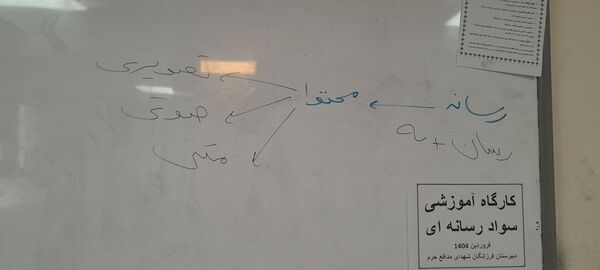 رسانه
رسان + ه
محتوا
تصویری
صوتی
متنی
کارگاه آموزشی
سواد رسانه ای
فروردین 1404
دبیرستان فرزانگان شهدای مدافع حرم